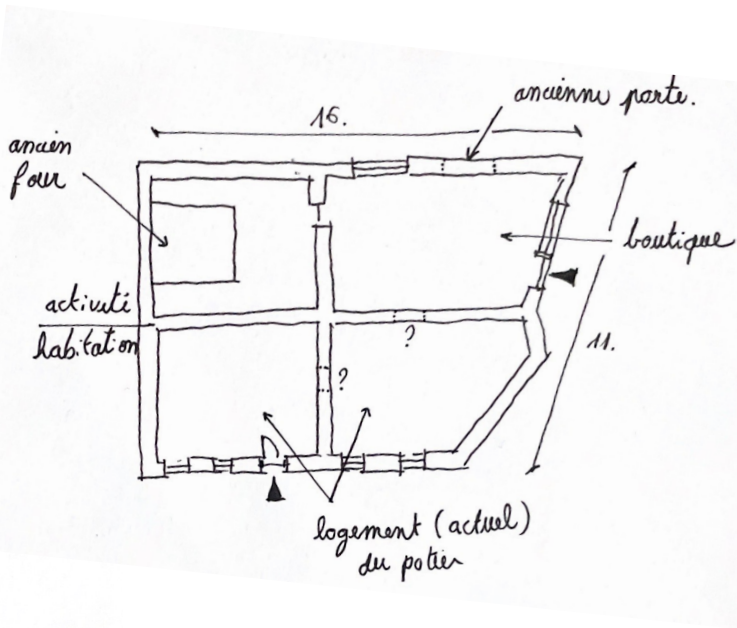 ancienne porte.
16.
ancien
four
boutique
activité
habitation
?
11.
?
logement (actuel)
du potier